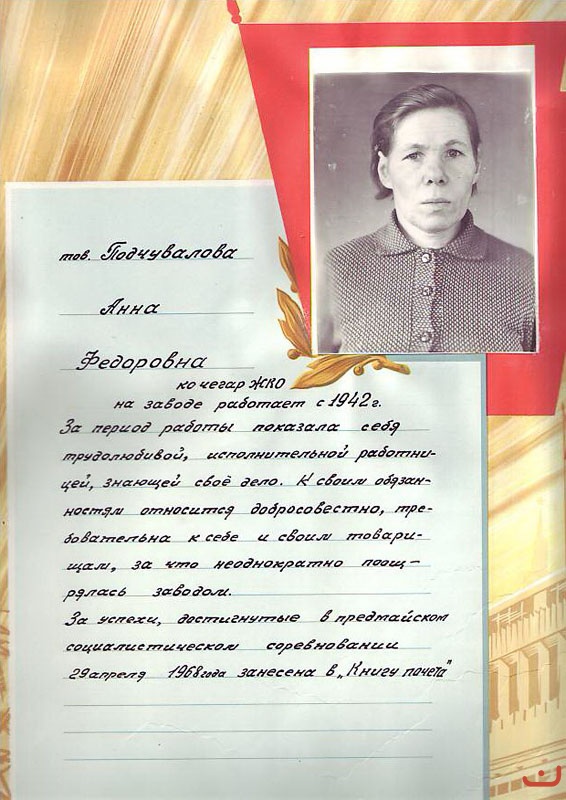 тов. Подчувалова
Анна
Федоровна
кочегар ЖКО
на заводе работает с 1942 г.
За период работы показала себя
трудолюбивой, исполнительной работни-
цей, знающей своё дело. К своим обязан-
ностям относится добросовестно, тре-
бовательна к себе и своим товари-
щам, за что неоднократно поощ-
рялась заводом.
За успехи, достигнутые в предмайском
социалистическом соревновании
29 апреля 1968 года занесена в „Книгу почета"